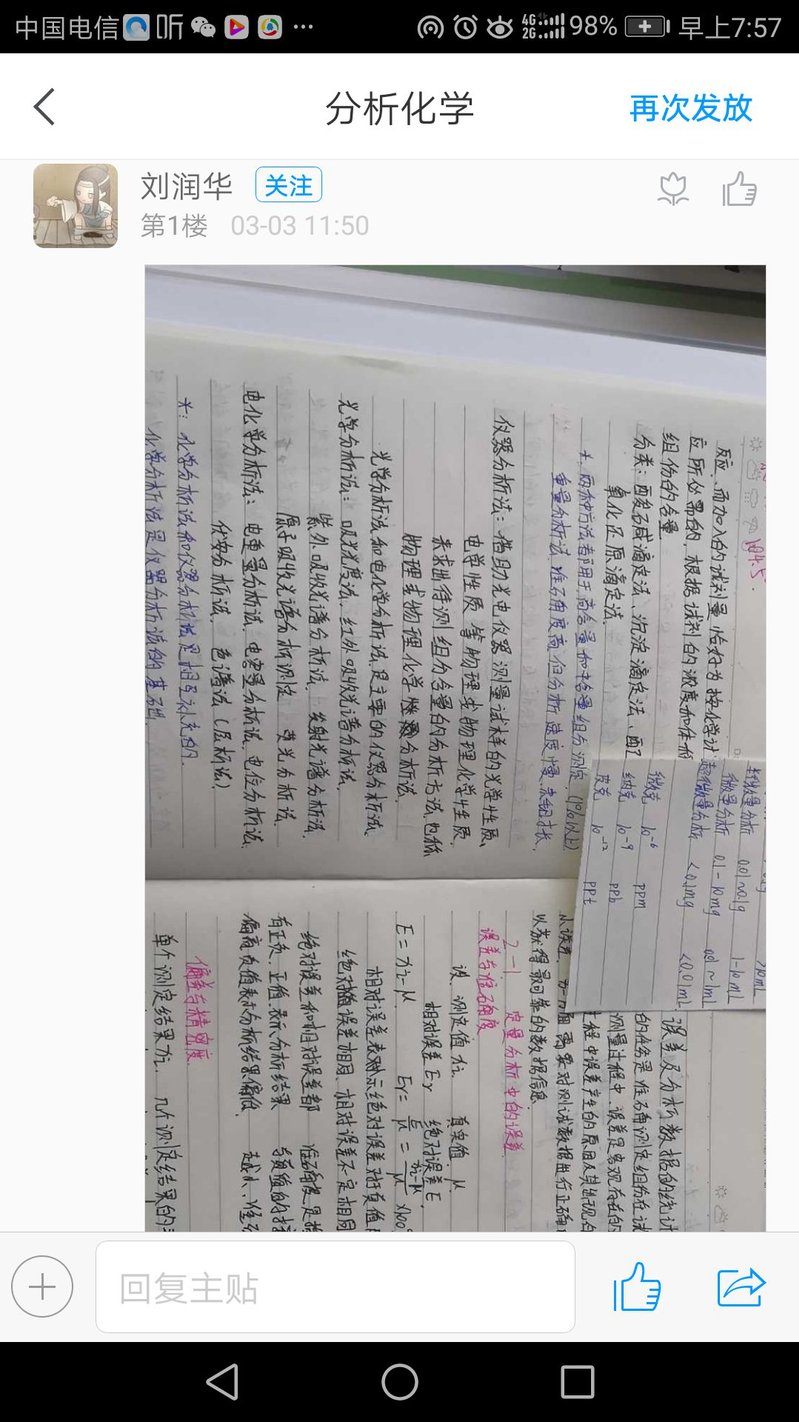 中国电信 听 ··· 4G 2G 98% 早上7:57
分析化学
再次发放
刘润华
关注
第1楼 03-03 11:50
104.5
反应、而加入的试剂量恰好为按化学计
应所必需的,根据试剂的浓度和体积
组份的含量
分类:酸碱滴定法、沉淀滴定法、配
氧化还原滴定法
*.两种方法都用于高含量和中含量组分测定.(1%以上)
重量分析法.准确度高,但分析速度慢.
仪器分析法:借助光电仪器测量试样的光学性质、
电学性质等物理或物理化学性质,
来求出待测组分含量的分析方法.也称
物理或物理化学分析法.
光学分析法和电化学分析法是主要的仪器分析法.
光学分析法:吸光光度法、红外吸收光谱分析法、
紫外吸收光谱分析法、发射光谱分析法
原子吸收光谱分析测定 荧光分析法.
电化学分析法:电重量分析法、电容量分析法、电位分析法.
伏安分析法、色谱法(层析法)
*:化学分析法和仪器分析法是相互补充的.
化学分析法是仪器分析法的基础.
>10mL
半微量分析 0.01~0.1g 1-10mL
微量分析 0.1-10mg 0.01~1mL
超微量分析 <0.1mg <0.01mL
微克 10⁻⁶ ppm
纳克 10⁻⁹ ppb
皮克 10⁻¹² ppt
误差及分析数据的统计
的任务是准确测定组份在试
测量过程中,误差是客观存在的
程中误差产生的原因及其出现的
需要对测试数据进行正确
以获得最可靠的数据信息.
2-1 定量分析中的误差.
误差与准确度
设、测定值xi. 真实值 μ.
相对误差Er 绝对误差E.
E=xi-μ Er=E/μ=xi-μ/μ×100
相对误差表示绝对误差对真值
绝对误差相同、相对误差不定相同
绝对误差和相对误差都 准确度是指
有正负、正值表示分析结果 与真值的
偏高负值表示分析结果偏低. 越小,准
偏差与精密度
单个测定结果xi、几个测定结果的
回复主贴